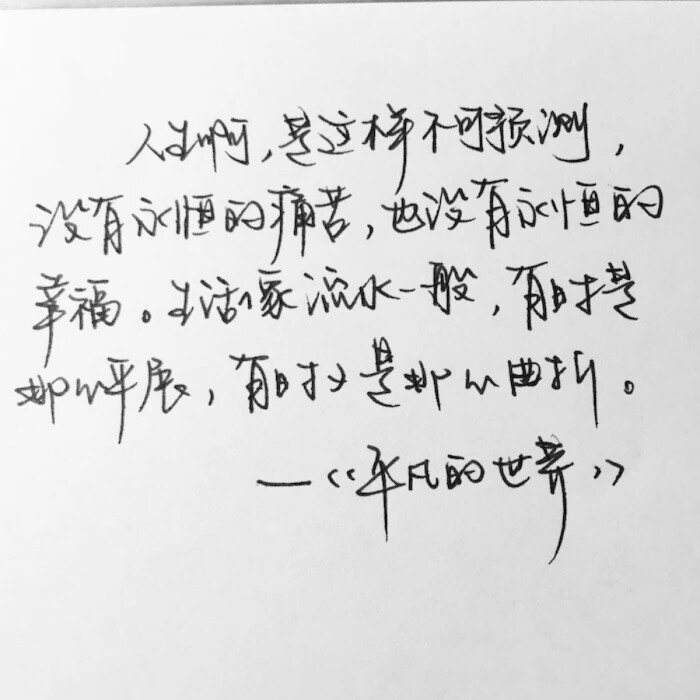 人生啊,是这样不可预测,
没有永恒的痛苦,也没有永恒的
幸福。生活像流水一般,有时是
那么平展,有时又是那么曲折。
—《平凡的世界》